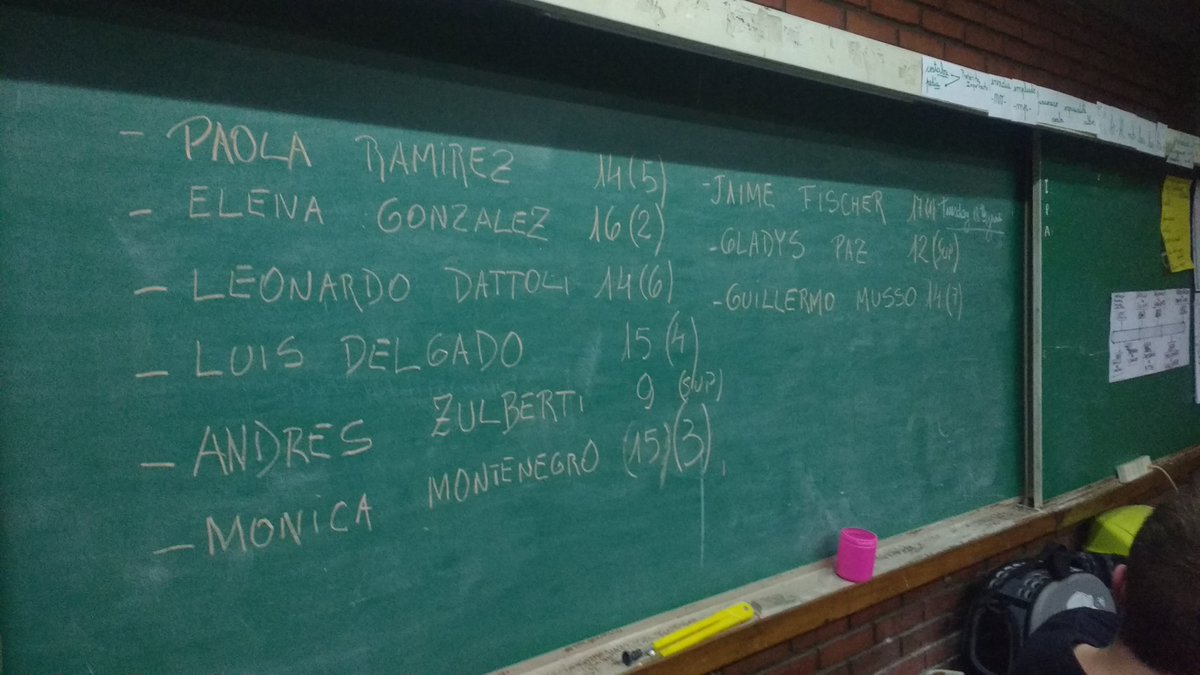 - PAOLA RAMIREZ 14(5)
- ELENA GONZALEZ 16(2)
- LEONARDO DATTOLI 14(6)
- LUIS DELGADO 15(4)
- ANDRES ZULBERTI 9 (SUP)
- MONICA MONTENEGRO (15)(3)
- JAIME FISCHER 17(1) Tuesday
- GLADYS PAZ 12(SUP)
- GUILLERMO MUSSO 14(7)
I
P
A